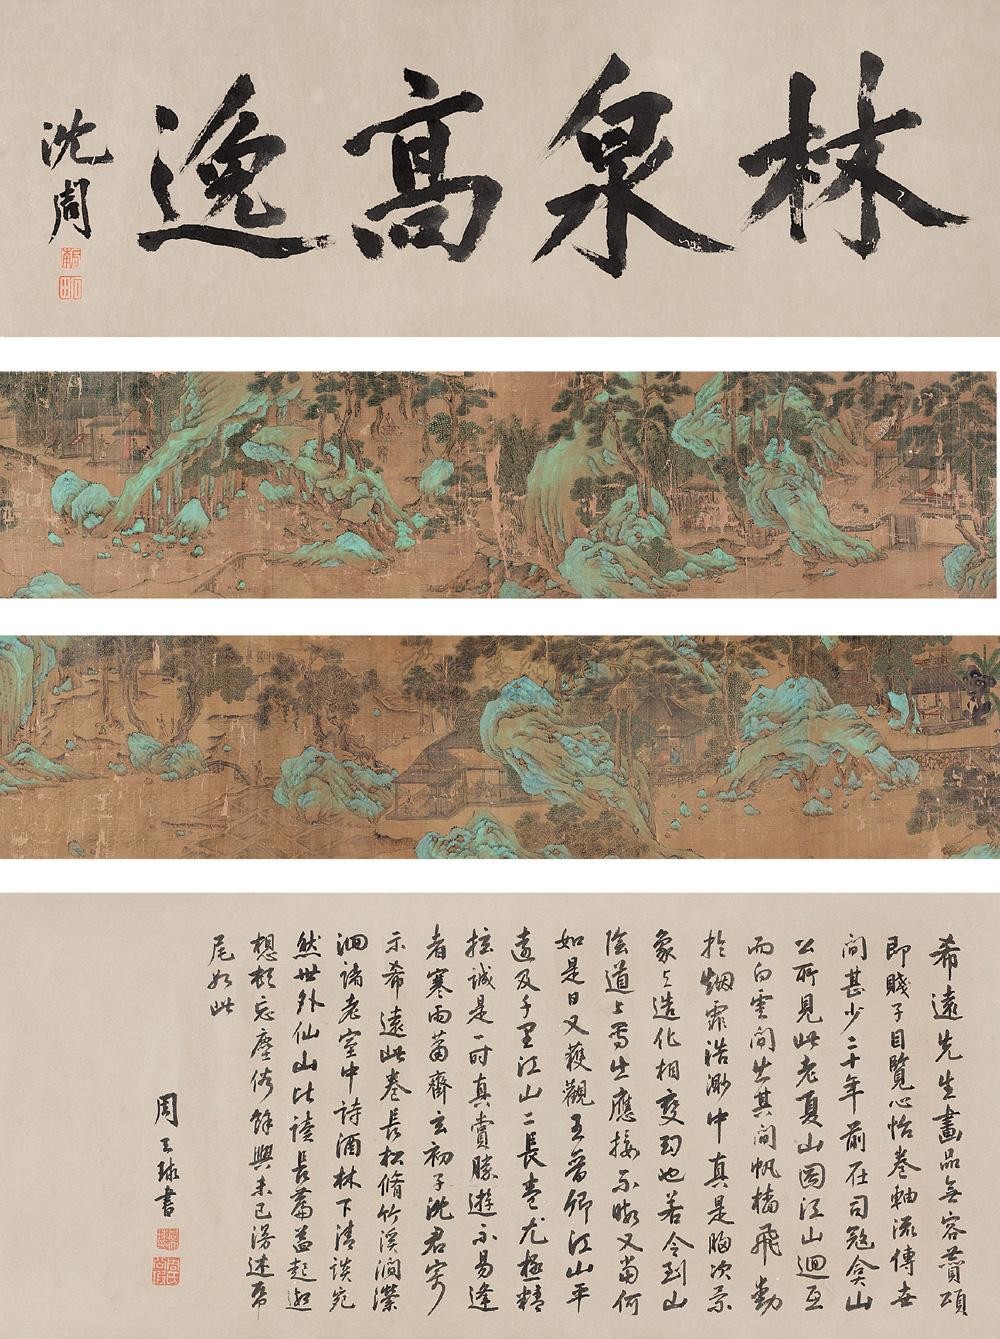 林泉高逸
沈周
希遠先生畫品無容贊頌
即賤子目覽心怡卷軸流傳世
間甚少二十年前在司寇弇山
公所見此老夏山圖江山迴互
而白雲間出其間帆檣飛動
於烟霏浩渺中真是胸次景
象與造化相變幻也若令到山
陰道上焉生應接不暇又當何
如是日又獲觀王晉卿江山平
遠及千里江山二長卷尤極精
妘誠是一時真賞勝遊不易逢
者寒雨蕭齋玄初子沈君寄
示希遠此卷長松脩竹溪澗瀠
洄諸老室中詩酒林下清談宛
然世外仙山比讀長篇益起遐
想頓忘塵俗餘興未已漫述卷
尾如此
周天球書